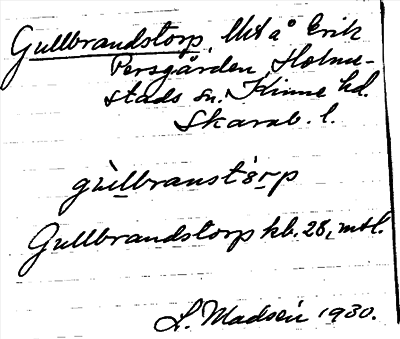 Gullbrandstorp, Utt å Erik
Persgården Holme-
stads sn. Kinne hd.
Skarab. l.
gùlbranst`årp
Gullbrandstorp kb. 28, mtl.
L. Madsén 1930.